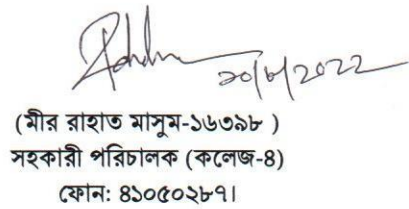 (মীর রাহাত মাসুম-১৬৩৯৮ )
সহকারী পরিচালক (কলেজ-৪)
ফোন: ৪১০৫০২৮৭।